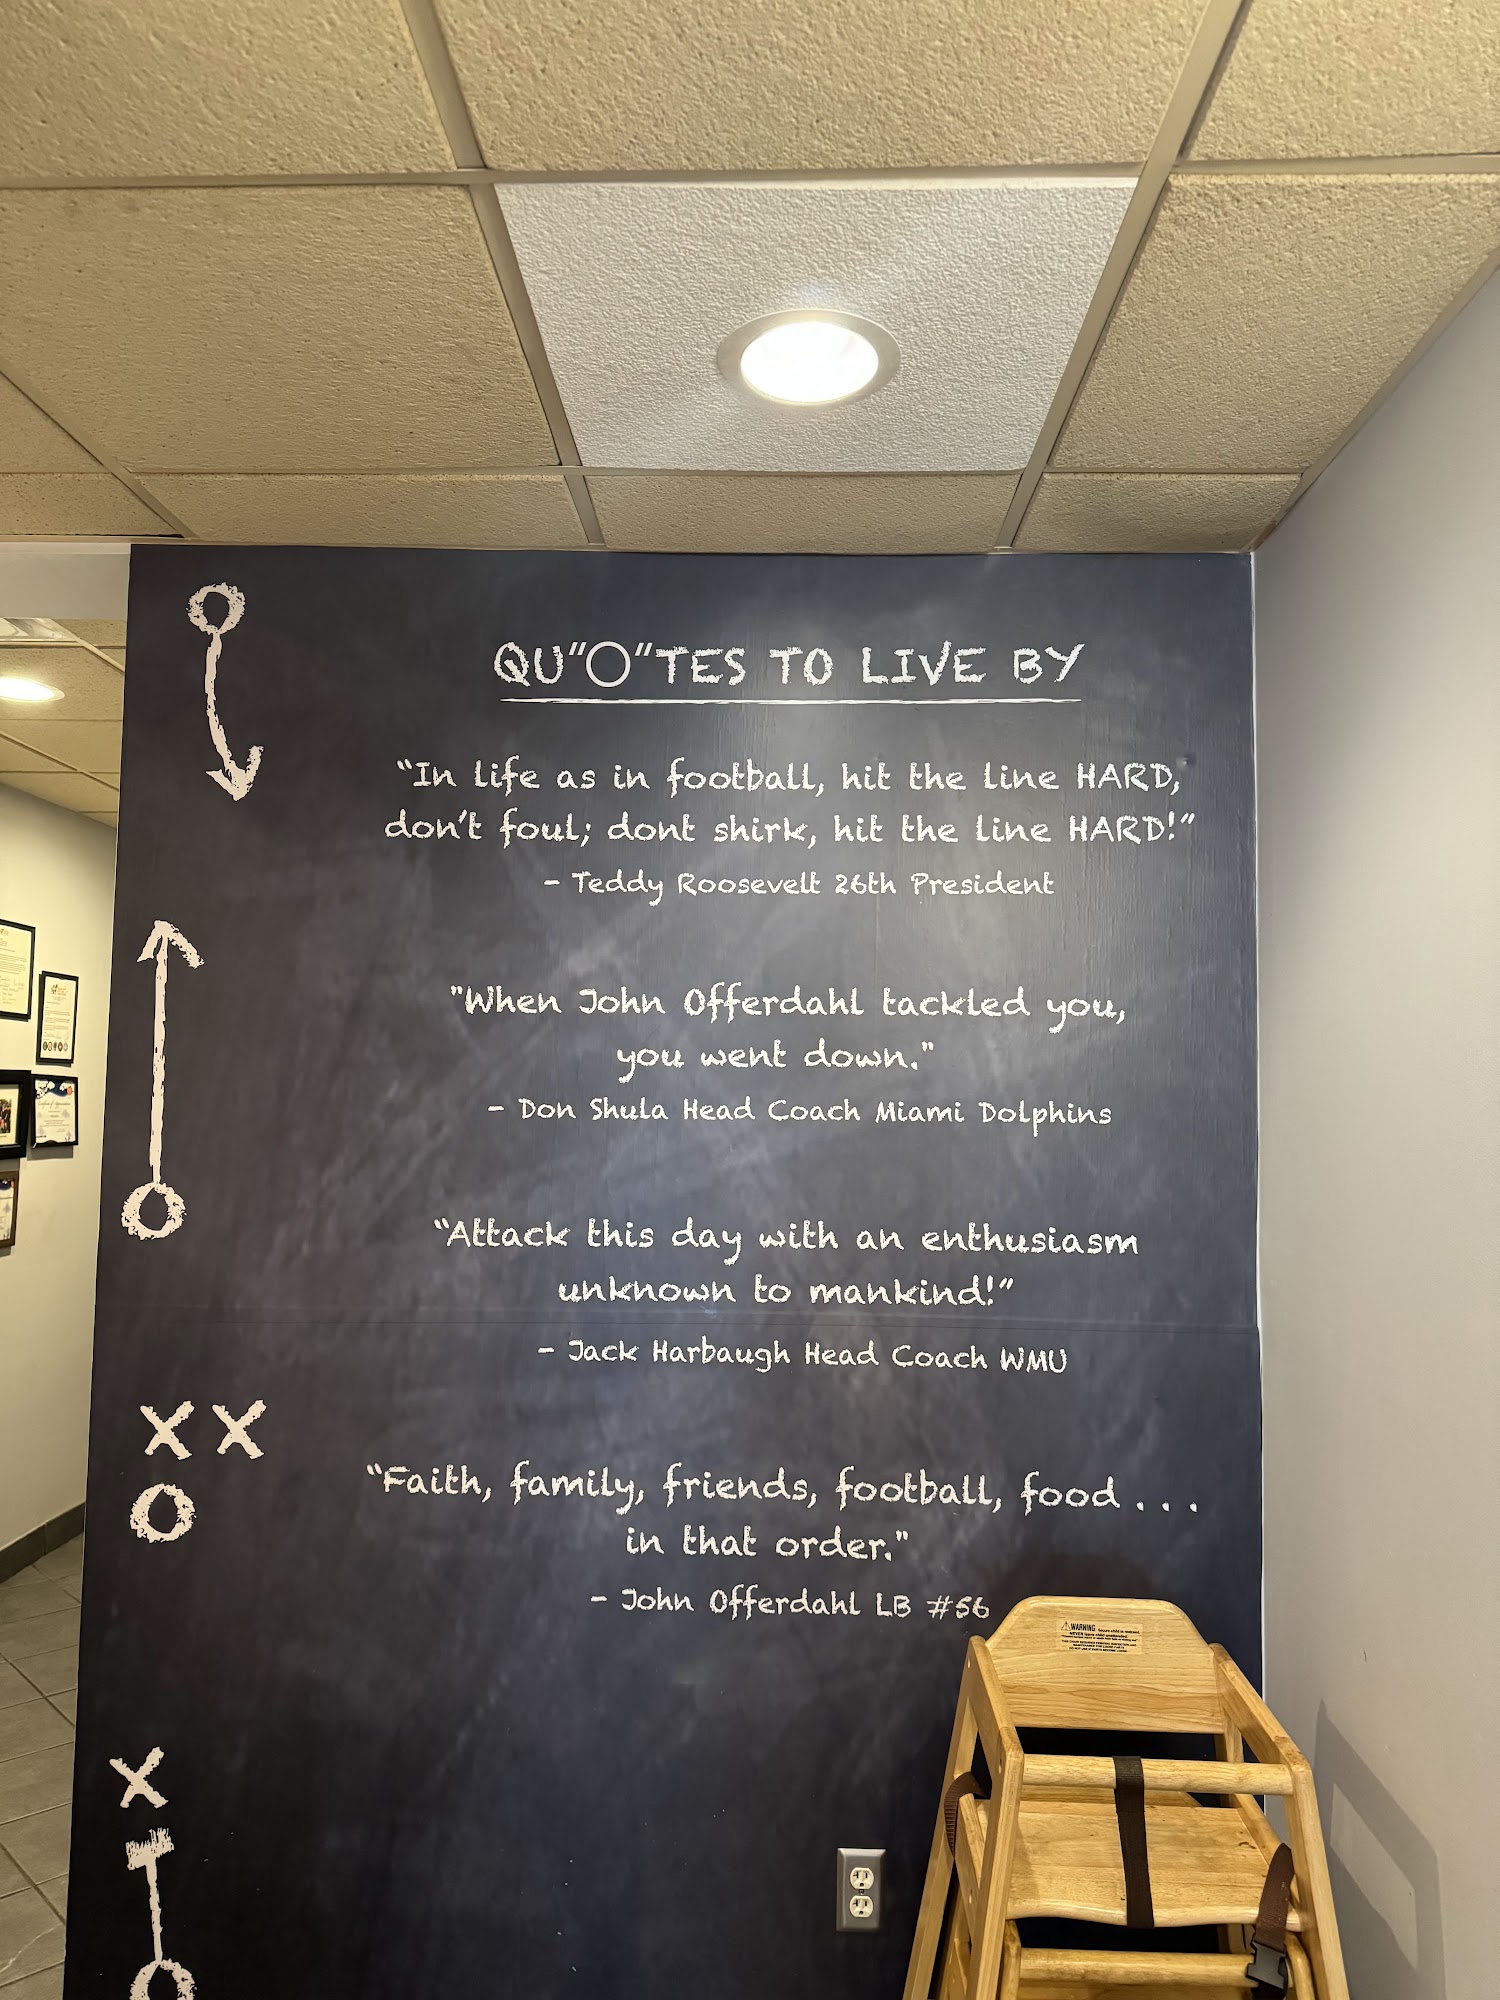 QU"O"TES TO LIVE BY
“In life as in football, hit the line HARD,
don’t foul; dont shirk, hit the line HARD!”
- Teddy Roosevelt 26th President
"When John Offerdahl tackled you,
you went down."
- Don Shula Head Coach Miami Dolphins
“Attack this day with an enthusiasm
unknown to mankind!”
- Jack Harbaugh Head Coach WMU
“Faith, family, friends, football, food . . .
in that order."
- John Offerdahl LB #56
WARNING